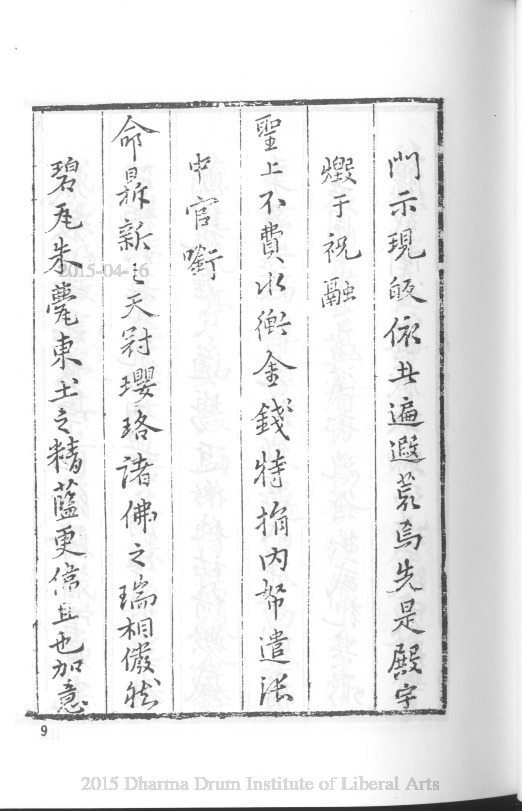 門示現皈依者遍遐荒焉先是殿宇
燬于祝融
聖上不費水衡金錢特捐內帑遣張
中官銜
命鼎新之天冠瓔珞諸佛之瑞相儼然
碧瓦朱甍東土之精藍更偉且也加意
9
2015-04-16
2015 Dharma Drum Institute of Liberal Arts